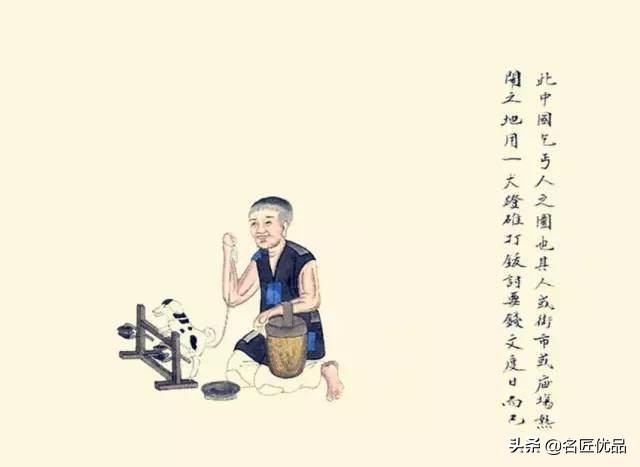 此中國乞丐人之圖也其人或街市或庙場熱
鬧之地用一犬蹬碓打鈸討要錢文度日而已
头条 @名匠优品